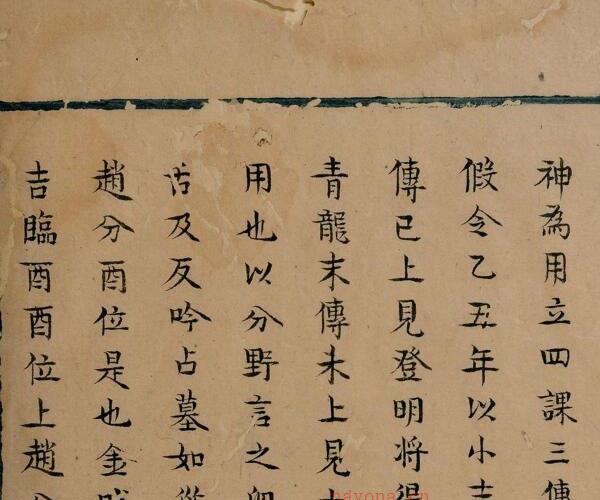 神為用立四課三傳
假令乙丑年以小吉
傳巳上見登明將得
青龍末傳未上見
用也以分野言之
及反吟占墓如
趙分酉位是也金
吉臨酉酉位上趙